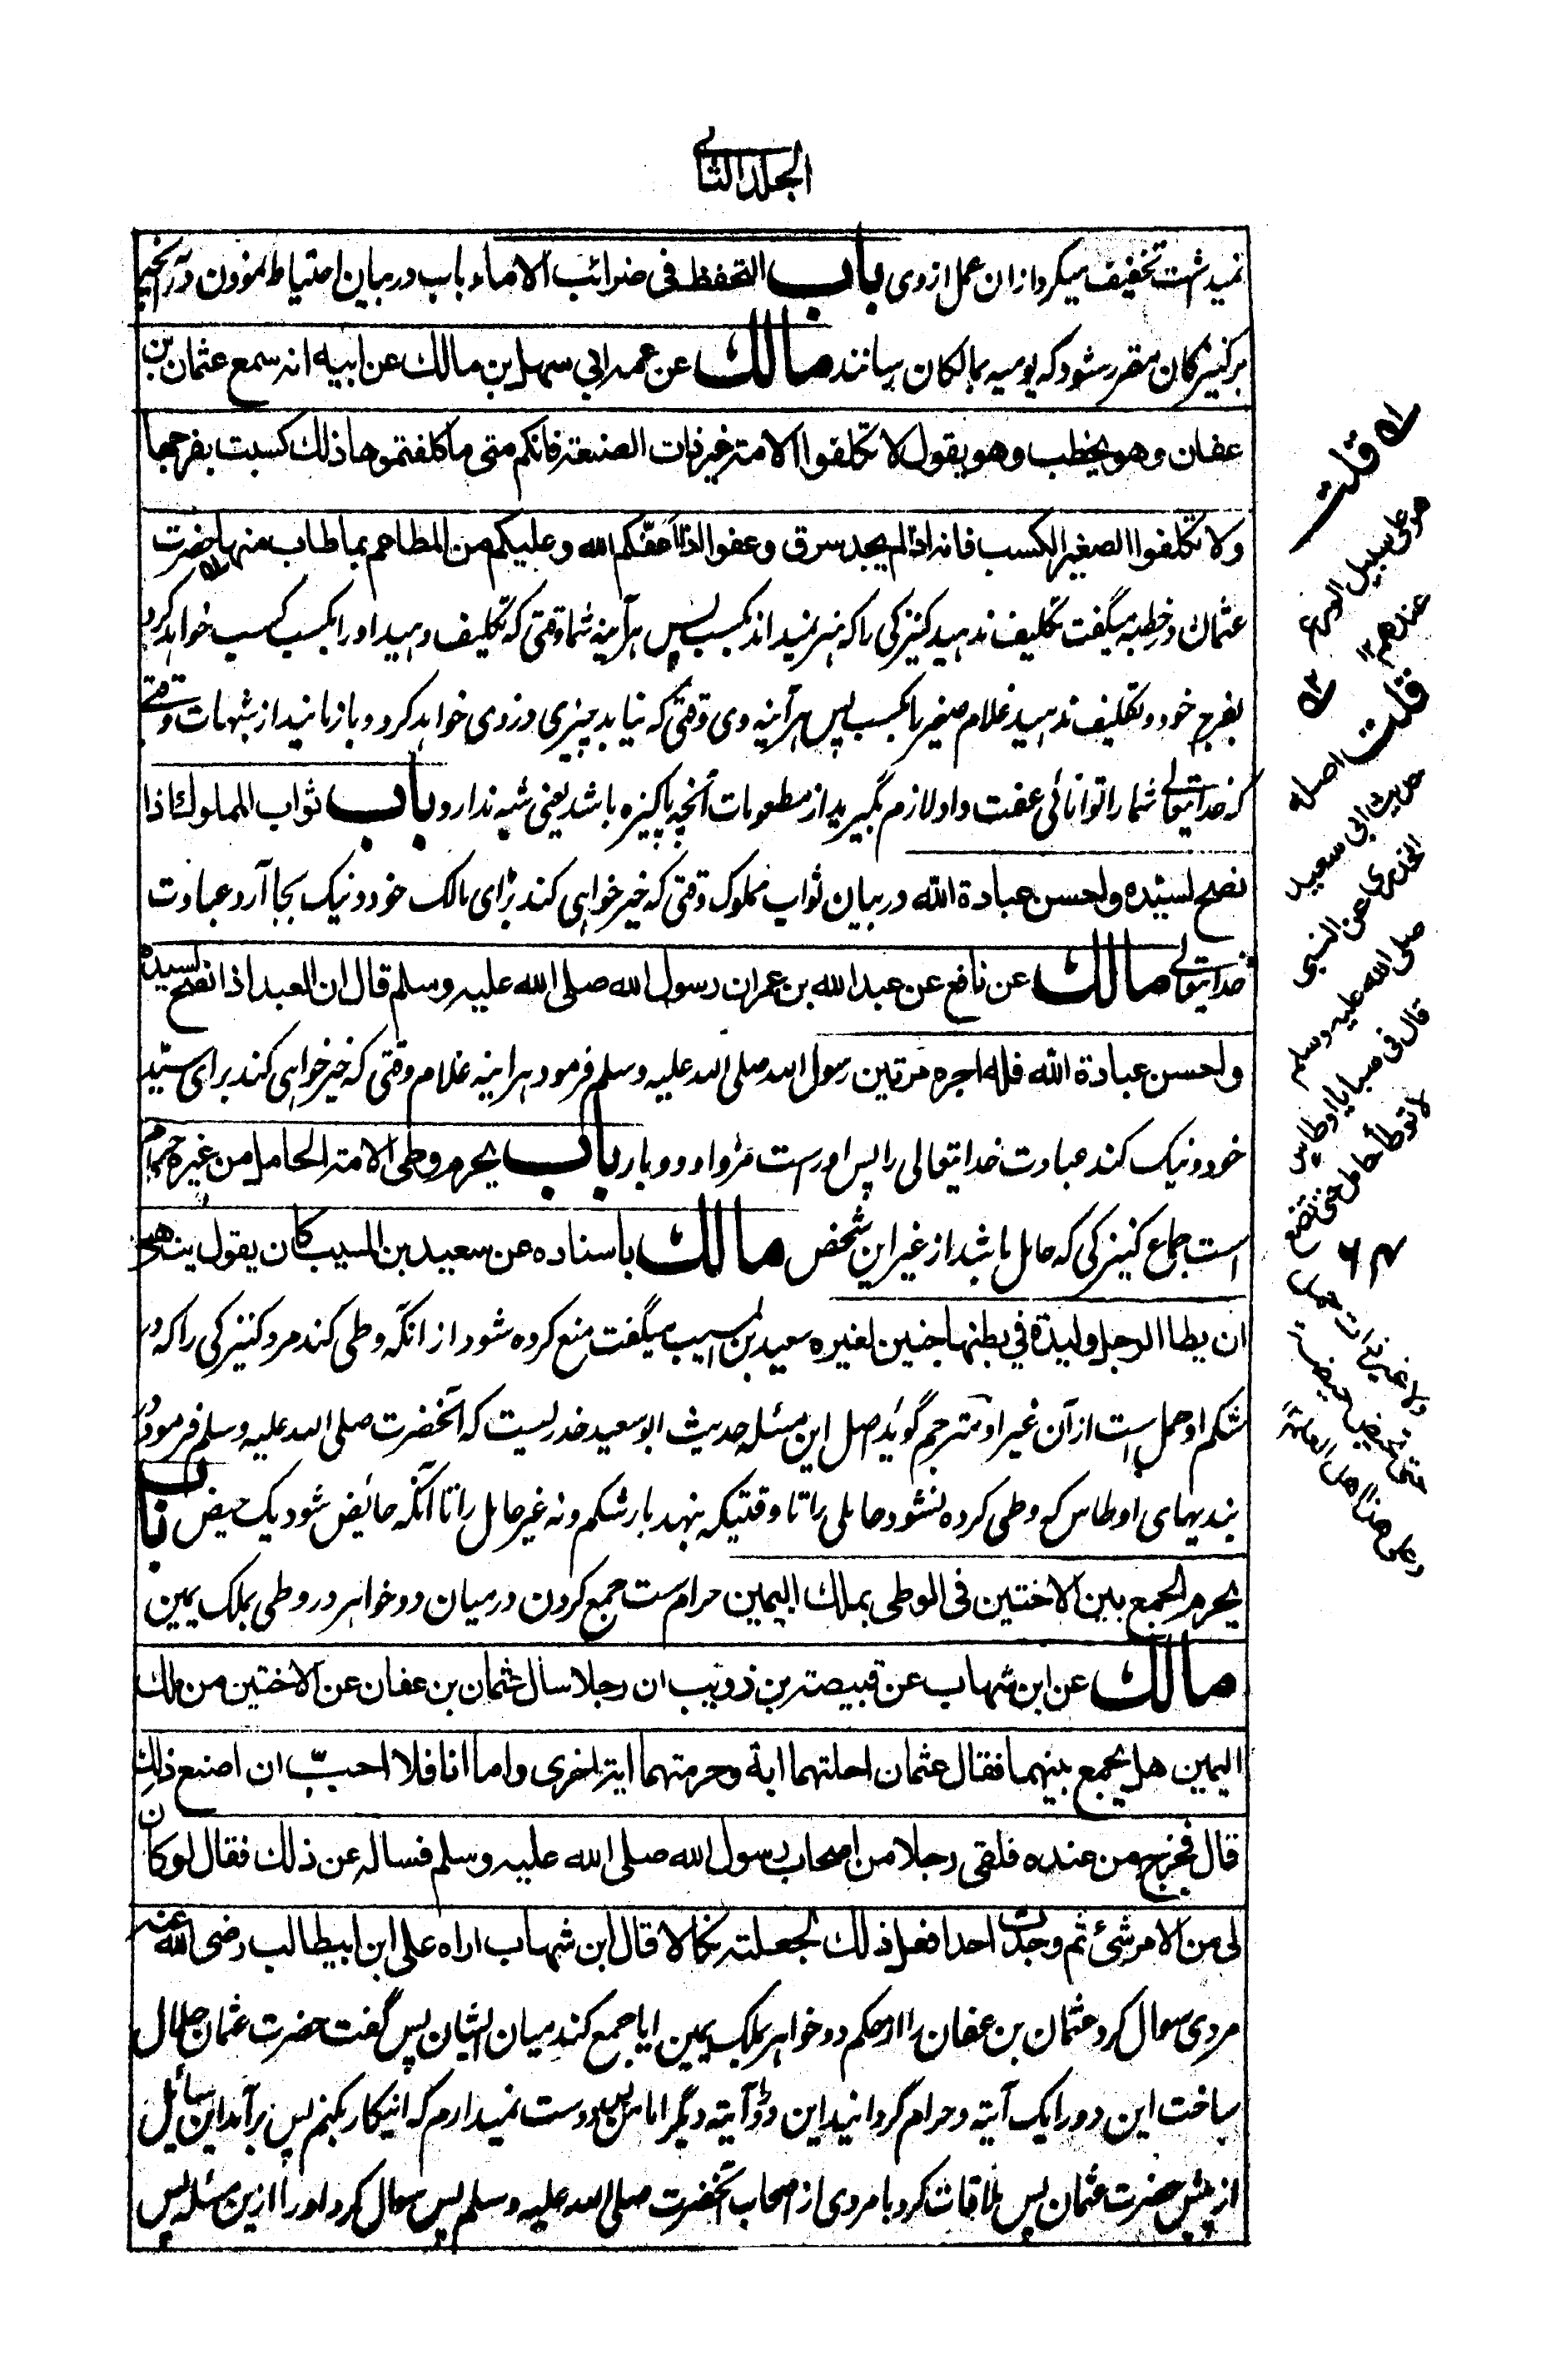 الجلد الثانی
نمیداشت تخفیف میکرد ازان عمل ازوی باب التحفظ فی ضرائب الاماء باب در بیان احتیاط نمودن در آنچه
بر کنیزکان مقرر شود که یومیه بمالکان رسانند مالك عن عمه ابي سهيل بن مالك عن ابيه انه سمع عثمان بن
عفان وهو يخطب وهو يقول لا تكلفوا الامة غير ذات الصنعة فانكم متى ما كلفتموها ذلك كسبت بفرجها
ولا تكلفوا الصغير الكسب فانه اذا لم يجد سرق وعفوا اذا اعفّكم الله وعليكم من المطاعم بما طاب منها حضرت
عثمان در خطبه میگفت تکلیف ندهید کنیزکی را که هنر نمیداند بکسب پس هرآینه شما وقتی که تکلیف دهید اورا بکسب کسب خواهد کرد
بفرج خود و تکلیف ندهید غلام صغیر را بکسب پس هرآینه وی وقتی که نیابد چیزی دزدی خواهد کرد و بازمانید از شبهات وقتی
که خدایتعالی شما را توانائی عفت داد و لازم بگیرید از مطعومات آنچه پاکیزه باشد یعنی شبه ندارد باب ثواب المملوك اذا
نصح لسيّده واحسن عبادة الله در بیان ثواب مملوک وقتی که خیرخواهی کند برای مالک خود و نیک بجا آرد عبادت
خدایتعالی مالك عن نافع عن عبد الله بن عمر ان رسول الله صلى الله عليه وسلم قال ان العبد اذا نصح لسيده
واحسن عبادة الله فله اجره مرتين رسول الله صلی الله علیه وسلم فرمود هراینه غلام وقتی که خیرخواهی کند برای سیّد
خود و نیک کند عبادت خدایتعالی را پس اوراست مزد او دو بار باب يحرم وطى الامة الحامل من غيره حرام
است جماع کنیزکی که حامل باشد از غیر این شخص مالك باسناده عن سعيد بن المسيب كان يقول ينهى
ان يطا الرجل وليدة في بطنها جنين لغيره سعید بن المسیب میگفت منع کرده شود از انکه وطی کند مرد کنیزکی را که در
شکم او حمل است از آن غیر او مترجم گوید اصل این مسئله حدیث ابو سعید خدریست که آنحضرت صلی الله علیه وسلم فرمود در
بندیهای اوطاس که وطی کرده نشود حاملی را تا وقتیکه بنهد بار شکم و نه غیر حامل را تا آنکه حائض شود یک حیض باب
يحرم الجمع بين الاختين فى الوطى بملك اليمين حرام ست جمع کردن درمیان دو خواهر در وطی بملک یمین
مالك عن ابن شهاب عن قبيصة بن ذويب ان رجلا سال عثمان بن عفان عن الاختين من ملك
اليمين هل يجمع بينهما فقال عثمان احلتهما اية وحرمتهما اية اخرى واما انا فلا احبّ ان اصنع ذلك
قال فخرج من عنده فلقى رجلا من اصحاب رسول الله صلى الله عليه وسلم فساله عن ذلك فقال لو كان
لى من الامر شئ ثم وجدت احدا فعل ذلك لجعلته نكالا قال ابن شهاب اراه على ابن ابيطالب رضى الله عنه
مردی سوال کرد عثمان بن عفان را از حکم دو خواهر بملک یمین ایا جمع کند میان ایشان پس گفت حضرت عثمان حلال
ساخت این دو را یک آیته و حرام گردانید این دو را آیته دیگر اما من پس دوست نمیدارم که اینکار بکنم پس برآمد این سائل
از پیش حضرت عثمان پس ملاقات کرد با مردی از اصحاب آنحضرت صلی الله علیه وسلم پس سوال کرد اورا ازین مسئله پس
قلت
هو على سبيل الورع
عندهم ١٢
قلت اصله
حديث ابي سعيد
الخدري عن النبي
صلى الله عليه وسلم
قال فى سبايا اوطاس
لا توطأ حامل حتى تضع
ولا غير ذات حمل
حتى تحيض حيضة